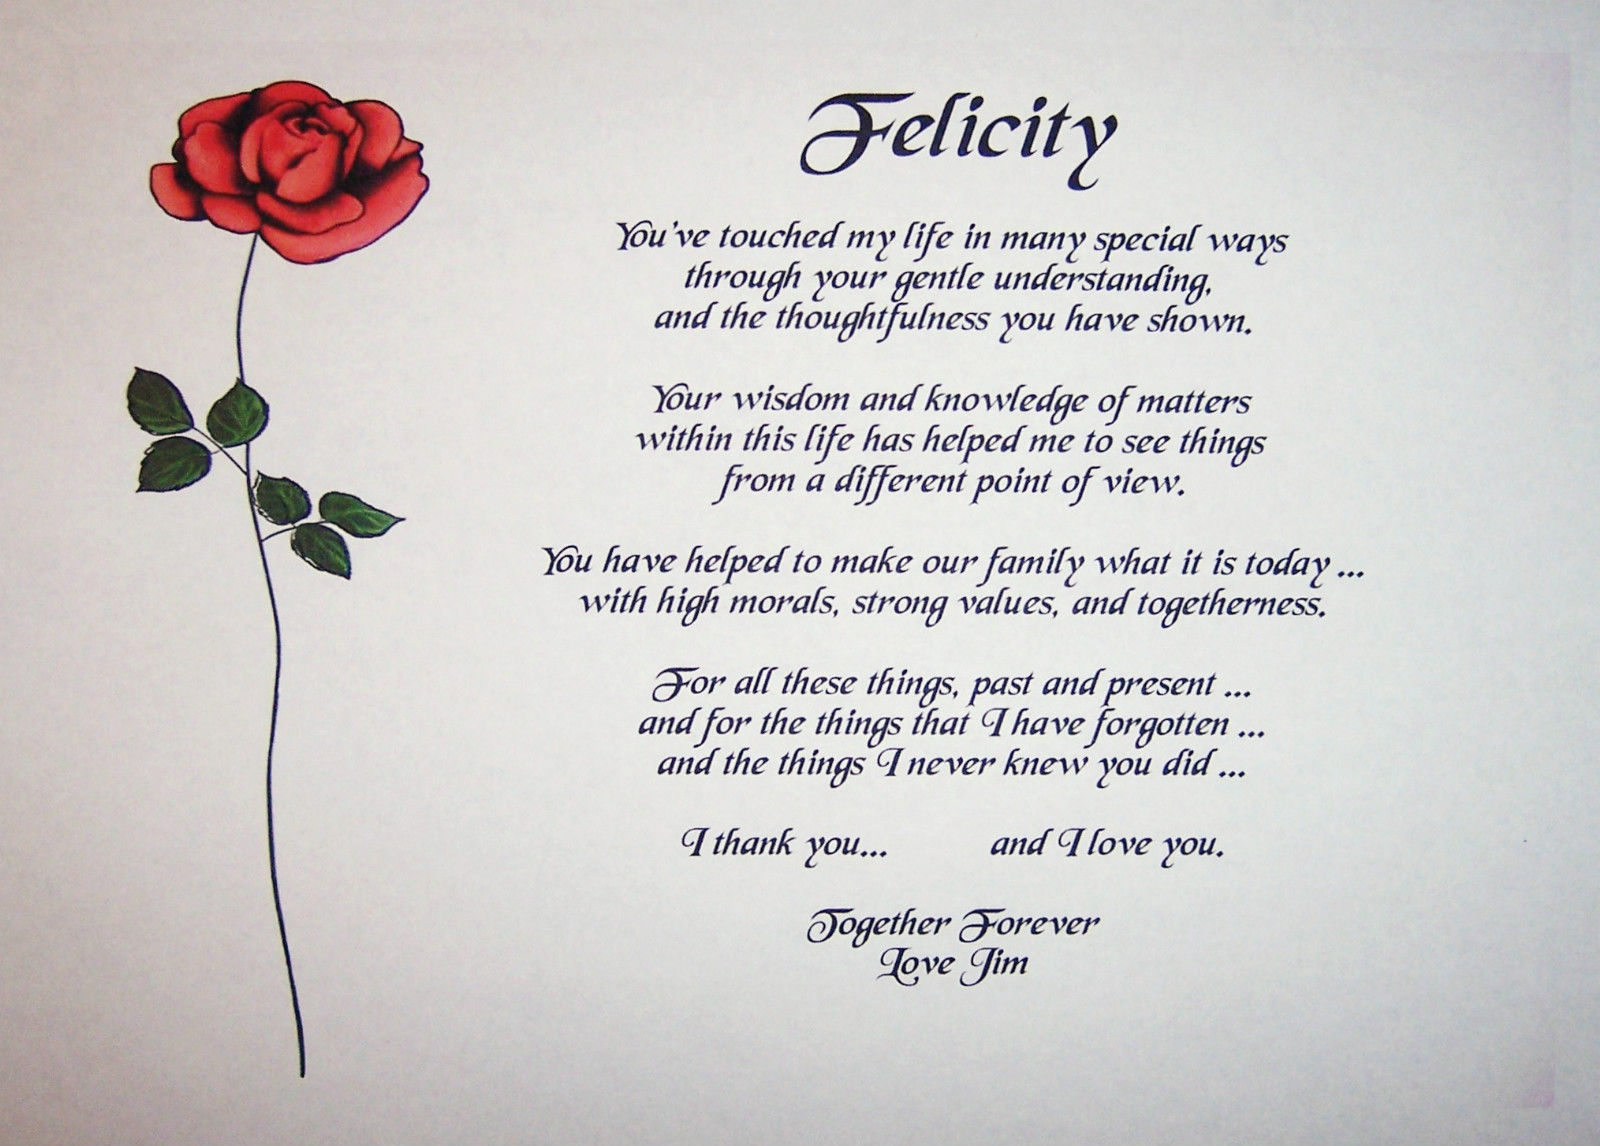 Felicity
You've touched my life in many special ways
through your gentle understanding,
and the thoughtfulness you have shown.
Your wisdom and knowledge of matters
within this life has helped me to see things
from a different point of view.
You have helped to make our family what it is today ...
with high morals, strong values, and togetherness.
For all these things, past and present ...
and for the things that I have forgotten ...
and the things I never knew you did ...
I thank you... and I love you.
Together Forever
Love Jim